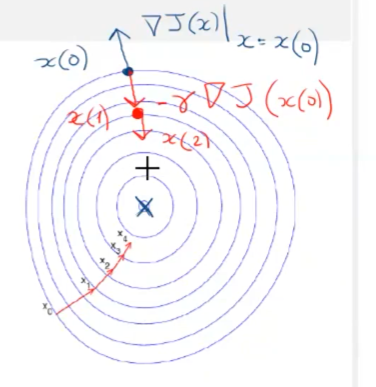 ∇J(x)|x=x(0)
x(0)
-γ∇J(x(0))
x(1)
x(2)
x₄
x₃
x₂
x₁
x₀